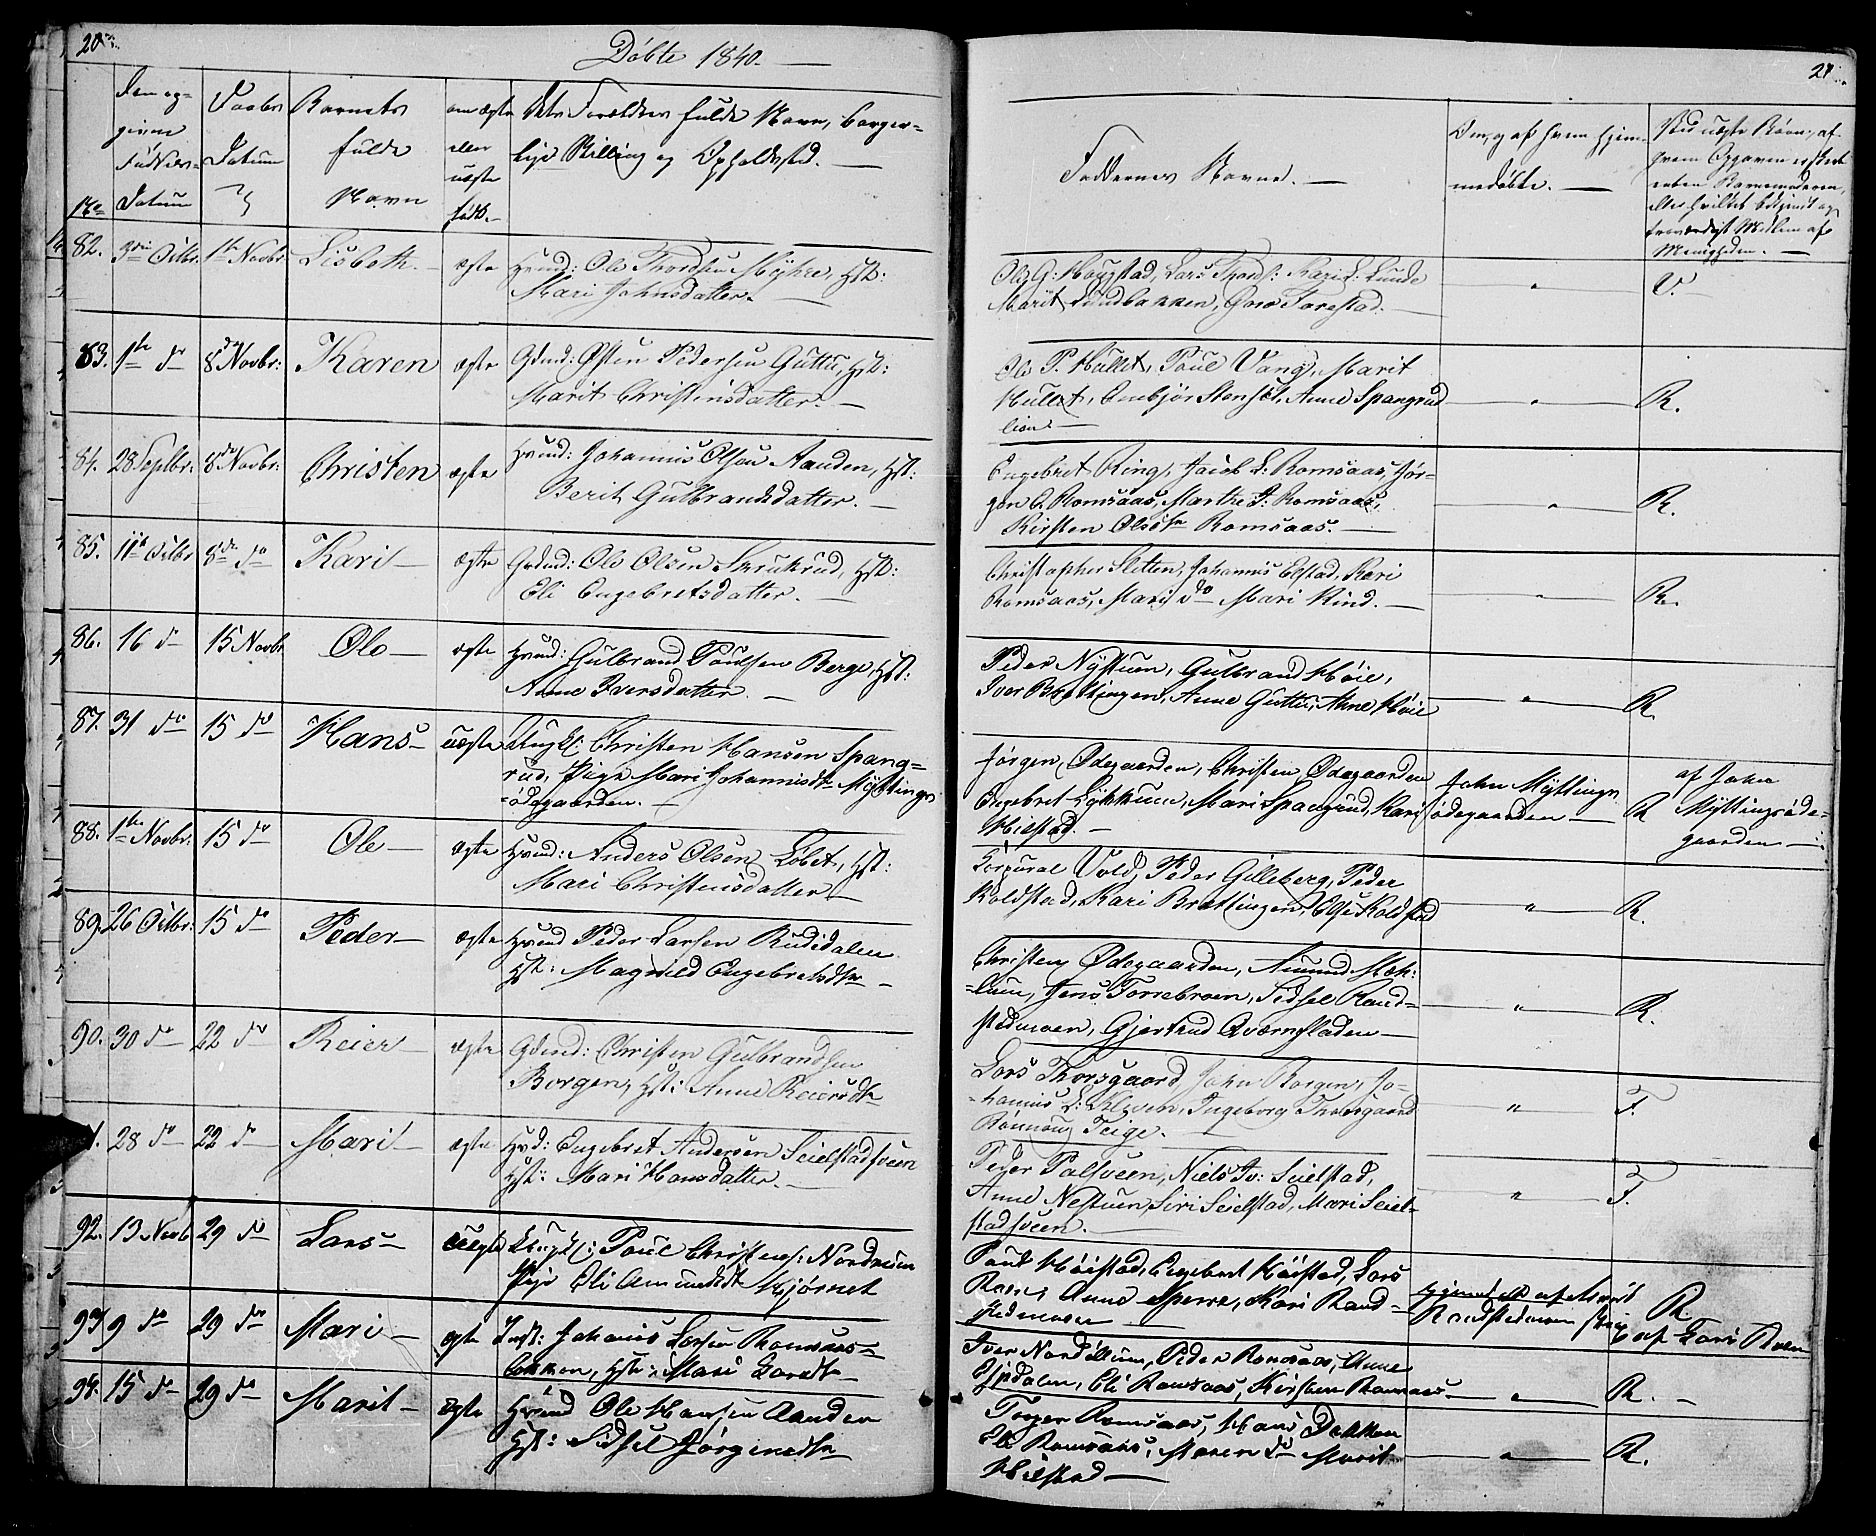 20
Døbte 1840.
No
Den op-
givne
Fødsels-
Datum
Daabs
Datum
Barnets
fulde
Navn
om ægte
eller
uægte
født.
Forældres fulde Navn, borger-
lige Stilling og Opholdssted.
82. 3die Octbr. 1te Novbr. Lisbeth ægte Hmd: Ole Thordsen Myhre, Hst:
Mari Johnsdatter.
83. 1te do 8de Novbr: Karen ægte Gdmd: Østen Pedersen Guttu, Hst:
Marit Christensdatter.
84. 28 Septbr. 8de Novbr: Christen ægte Hmd: Johannes Olsen Aanden, Hst:
Berit Gulbrandsdatter.
85. 11te Octbr 8de do Kari ægte Gdmd: Ole Olsen Skrukrud, Hst:
Eli Engebretsdatter.
86. 16 do 15 Novbr Ole ægte Hmd: Gulbrand Poulsen Berge, Hst:
Anne Iversdatter.
87. 31 do 15 do Hans uægte Ungkl. Christen Hansen Spang=
rud, Pige Mari Johannisdtr Myttings
=ødegaarden.
88. 1te Novbr. 15 do Ole ægte Hmd: Anders Olsen Løbet, Hst:
Mari Christensdatter
89. 26 Octbr: 15 do Peder ægte Hmd Peder Larsen Rudidalen
Hst: Magnild Engebretsdtr
90. 30 do 22 do Reier ægte Gdmd: Christen Gulbrandsen
Borgen, Hst: Anne Reiersdtr
28 do 22 do Mari ægte Hmd: Engebret Andersen Seielstadsveen
Hst: Mari Hansdatter.
92. 13 Novb 29 do Lars uægte Ungkl: Poul Christens: Nordrum
Pige Eli Amundsdtr Hjørnet
93 9 do 29 do Mari ægte Indst: Johanis Larsen Romsaas=
bakken, Hst: Mari Larsdtr
94. 15 do 29 do Marit ægte Hmd Ole Hansen Aanden
Hst: Sidsel Jørgensdtr
21
Faddernes Navne.
Om, og af hvem hjem-
medøbte.
Ved uægte Børn, af
hvem Opgaven er skeet
enten Barnemoderen,
eller hvilket bekjendt og
troværdigt Medlem af
Menigheden.
Ole G: Haugstad, Lars Thords: Kari L: Lunde
Marit Sundbakken, Forestad. " V.
Ole P. Hullet, Poul Vang, Marit
Hullet, Embjør Stenset, Anne Spangrud
lien. " R.
Engebret Ring, Jacob L: Romsaas, Jør-
gen O. Romsaas, Marthe J: Romsaas,
Kirsten Olsdtr Romsaas. " R.
Christopher Sletten, Johannis Elstad, Kari
Romsaas, Mari do Mari Rind. " R.
Peder Nystuen, Gulbrand Høie,
Iver Brættingen, Anne Guttu, Anne Høie " R.
Jørgen Ødegaarden, Christen Ødegaarden
Engebret Lykkum, Mari Spangrud, Kari
Hielstad.
John Myttings
ødegaarden R
af John
Myttingsøde-
gaarden
Korporal Vold, Peder Gilleberg, Peder
Koldstad, Kari Brættingen, Else Koldstad " R.
Christen Ødegaarden, Amund Mæh-
=lum, Jens Torrebroen, Sidsel Rand-
stedmoen, Gjertrud Qværnfladen " R.
Lars Thorsgaard, John Borgen, Jo-
=hannes L: Kleven, Ingeborg Thorsgaard
Rønnaug Teige. " F.
Peder Palsveen, Niels Iv: Seielstad,
Anne Nestuen, Siri Seielstad, Mari Seiel-
stadsveen. " F.
Poul Høistad, Engebret Høistad, Lars
Anne Sperre, Kari Rand=
stedmoen
Randstedmoen
R
af Kari
Iver Nordrum, Peder Romsaas, Anne
Espdalen, Eli Romsaas, Kirsten Romsaas " R.
Torger Romsaas, Hans Dækken
Eli Romsaas, Maren do Marit
Hielstad " R.